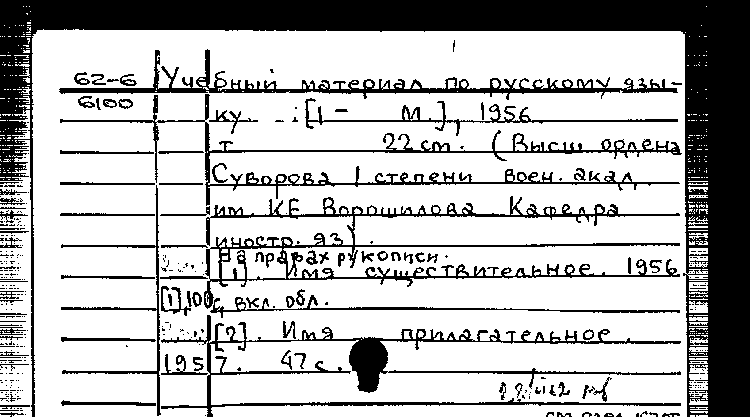 62-6 Учебный материал по русскому язы-
6100 ку. .:[1 - М.], 1956.
т 22 cm. (Высш. ордена
Суворова I степени воен. акад.
им. КЕ Ворошилова Кафедра
иностр. яз).
На правах рукописи.
[1]. Имя существительное. 1956.
[1],100с, вкл. обл.
[2]. Имя прилагательное.
1957. 47 с.